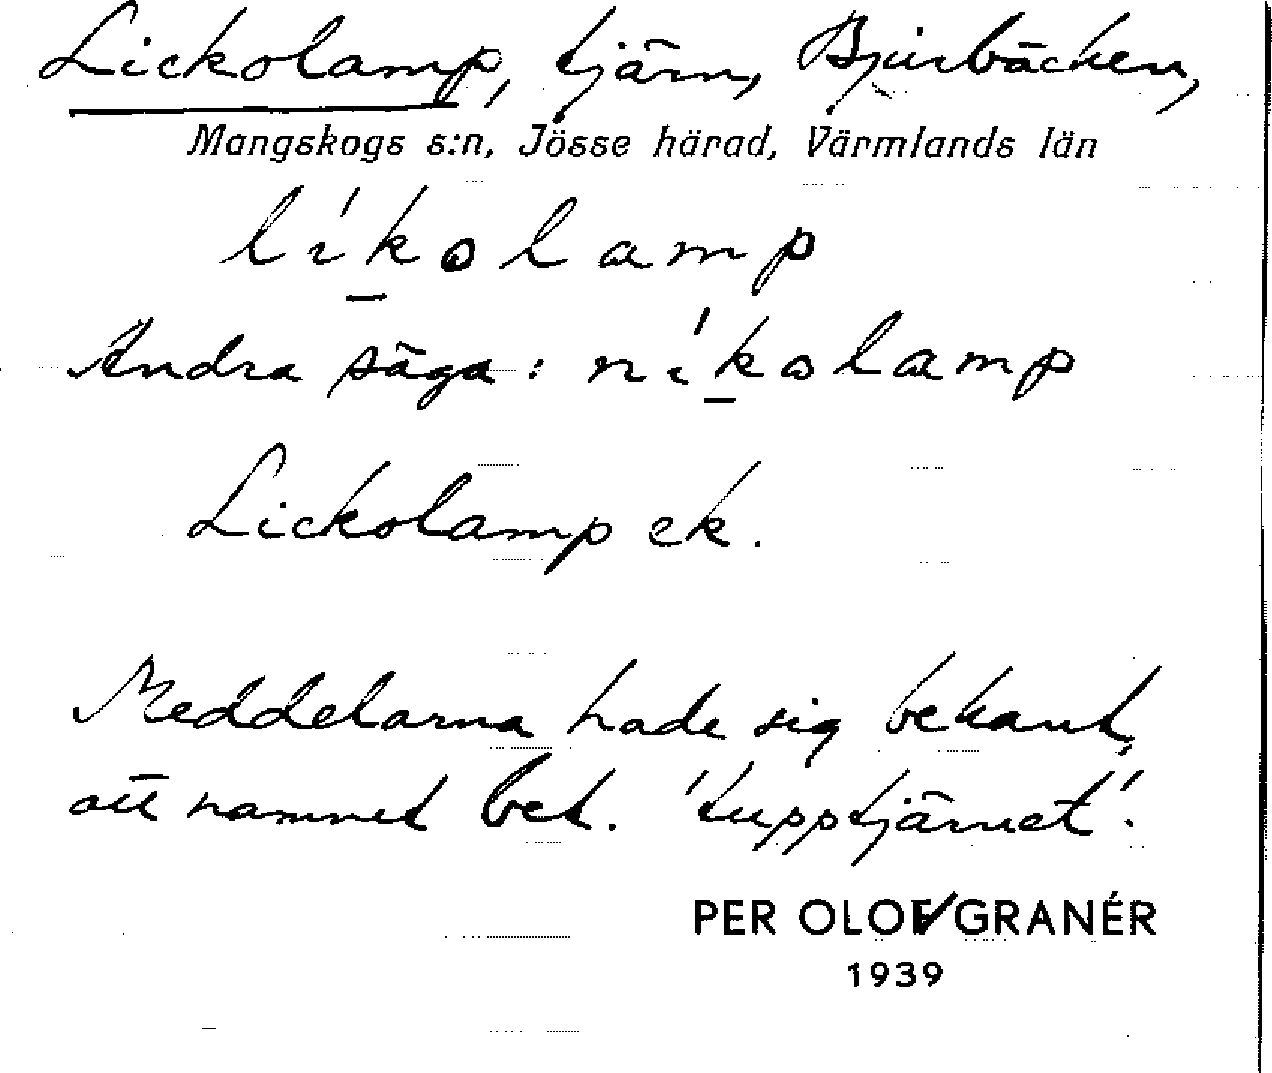 Lickolamp, tjärn, Bjurbäcken,
Mangskogs s:n, Jösse härad, Värmlands län
lı́kolamp
Andra säga: nı́kolamp
Lickolamp ek.
Meddelarna hade sig bekant,
att namnet bet. 'tupptjärnet'.
PER OLOF GRANÉR
1939